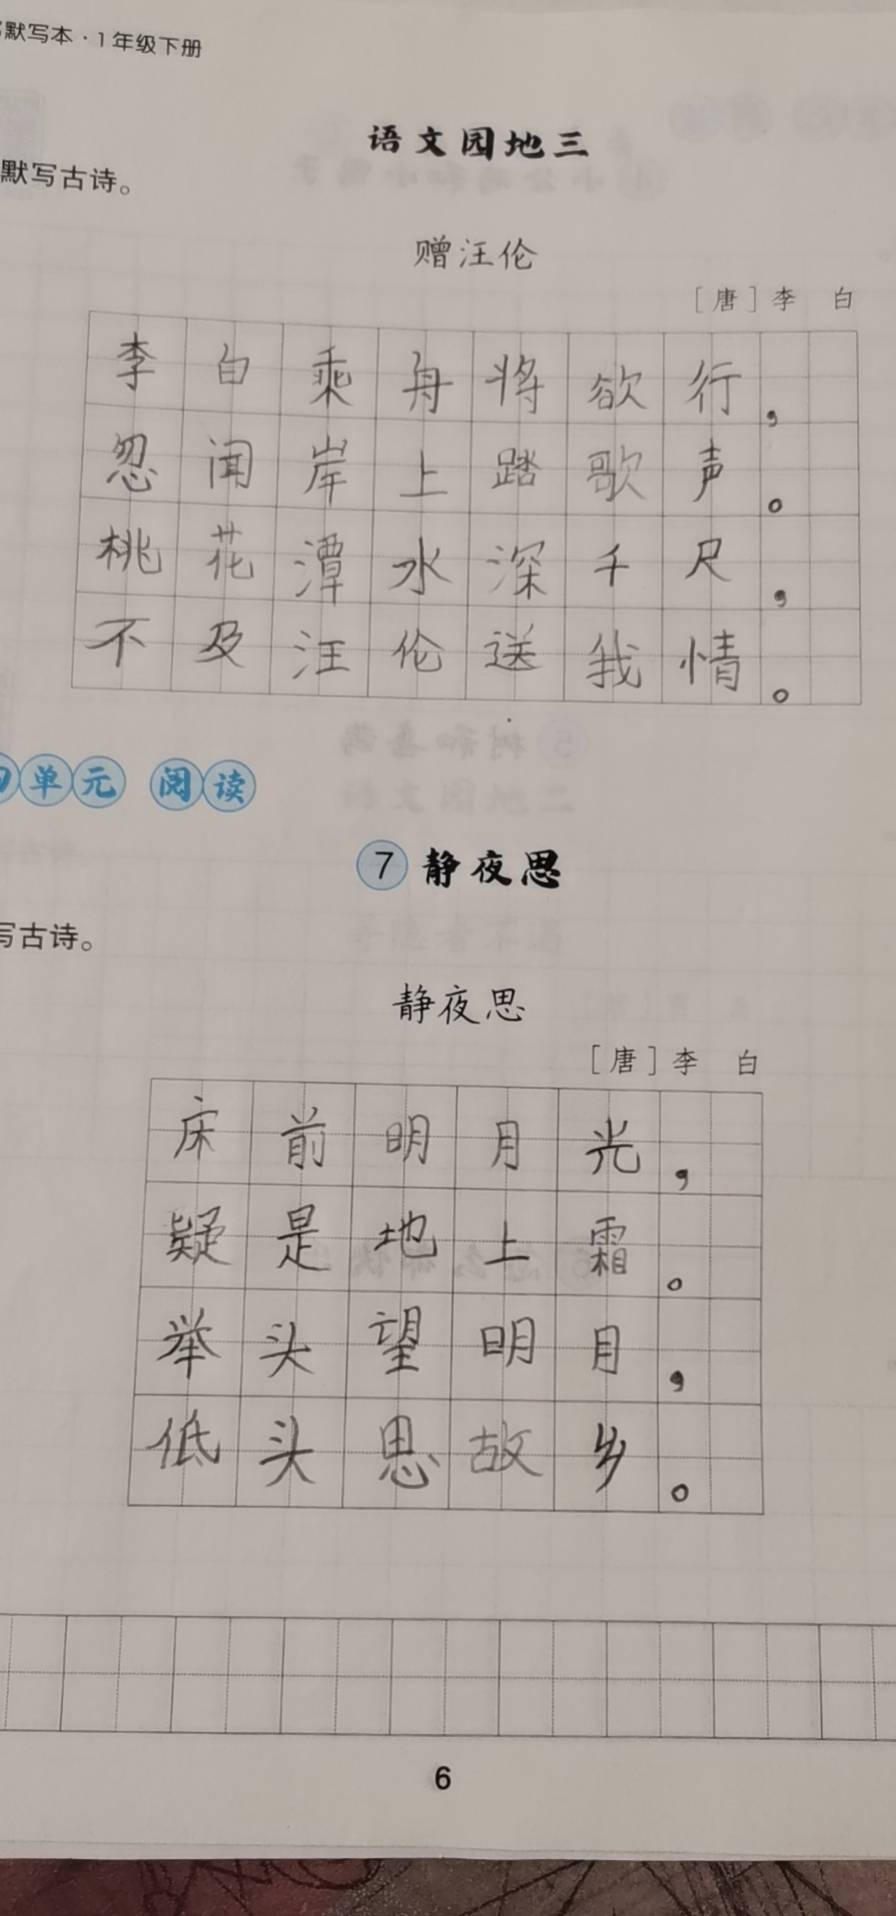 默写本·1年级下册
语文园地三
默写古诗。
赠汪伦
[唐]李 白
李白乘舟将欲行,
忽闻岸上踏歌声。
桃花潭水深千尺,
不及汪伦送我情。
单元 阅读
7 静夜思
写古诗。
静夜思
[唐]李 白
床前明月光,
疑是地上霜。
举头望明月,
低头思故乡。
6